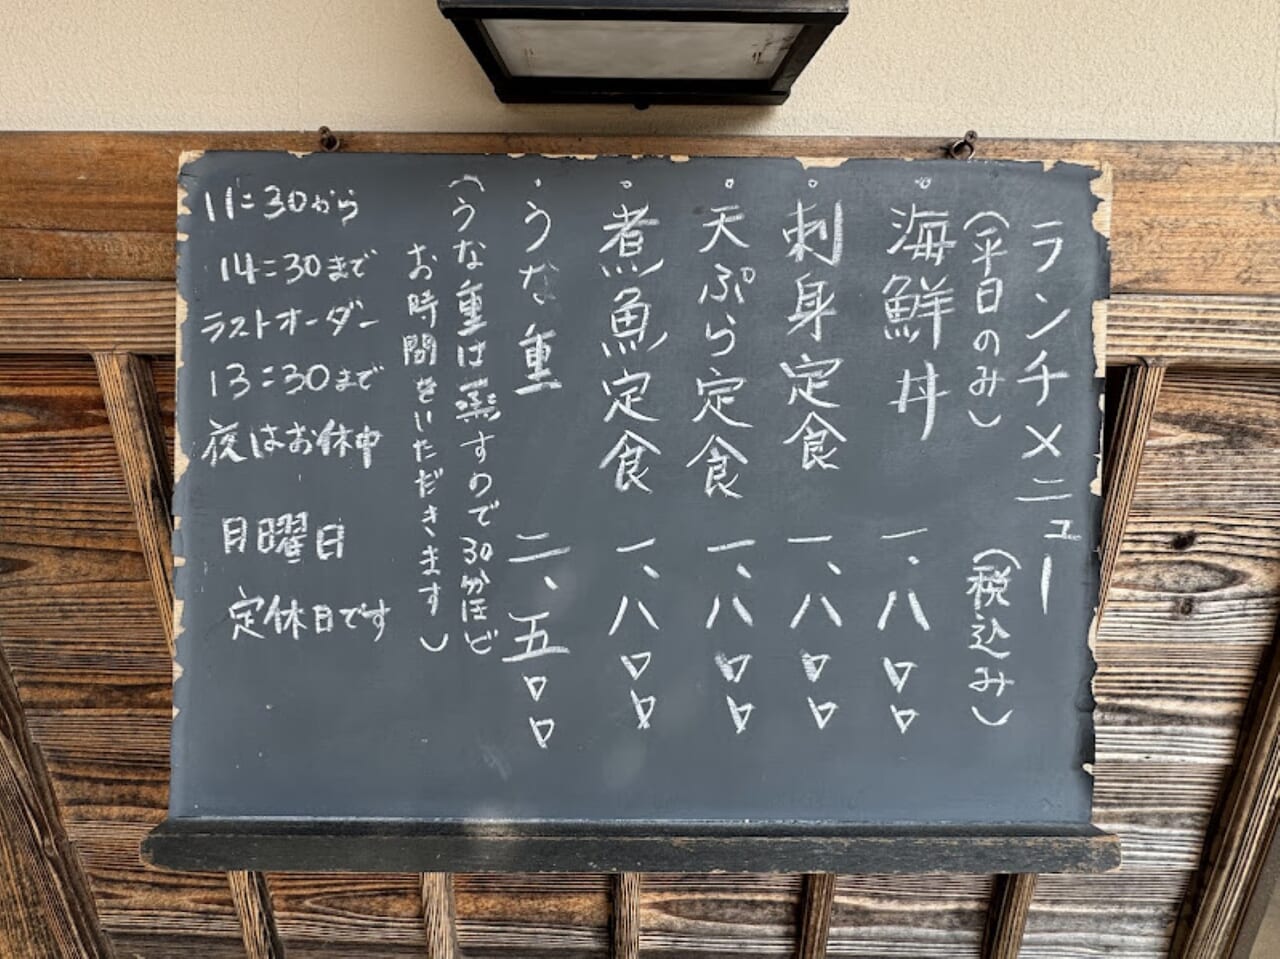 ランチメニュー
(平日のみ)
(税込み)
。海鮮丼 一、八〇〇
。刺身定食 一、八〇〇
。天ぷら定食 一、八〇〇
。煮魚定食 一、八〇〇
。うな重 二、五〇〇
(うな重は蒸すので30分ほど
お時間をいただきます)
11:30から
14:30まで
ラストオーダー
13:30まで
夜はお休中
月曜日
定休日です